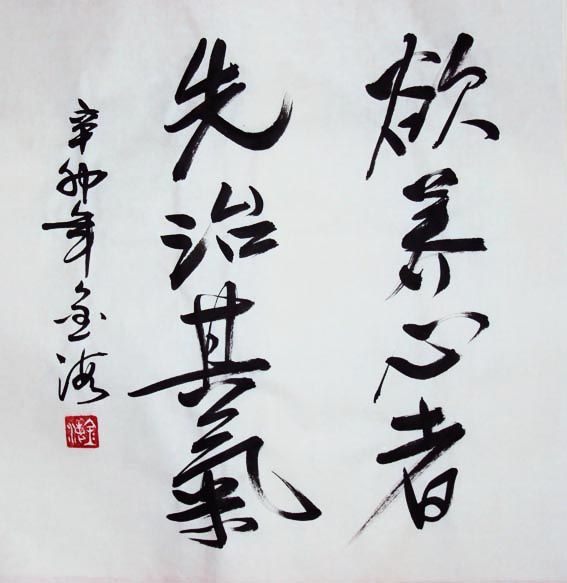 欲养心者
先治其氣
辛卯年金海